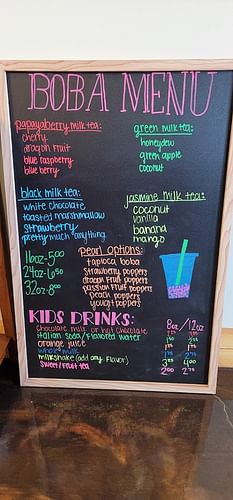 BOBA MENU
papayaberry milk tea:
cherry
dragon fruit
blue raspberry
blue berry
green milk tea:
honeydew
green apple
coconut
black milk tea:
white chocolate
toasted marshmallow
strawberry
pretty much anything
jasmine milk tea:
coconut
vanilla
banana
mango
16oz-5⁰⁰
24oz-6⁵⁰
32oz-8⁰⁰
pearl options:
tapioca boba
strawberry poppers
dragon fruit poppers
passion fruit poppers
peach poppers
yogurt poppers
KIDS DRINKS: 8oz/12oz
chocolate milk or hot chocolate
italian soda/flavored water
orange juice
whole milk
milkshake (add any flavor)
sweet/fruit tea 2⁰⁰